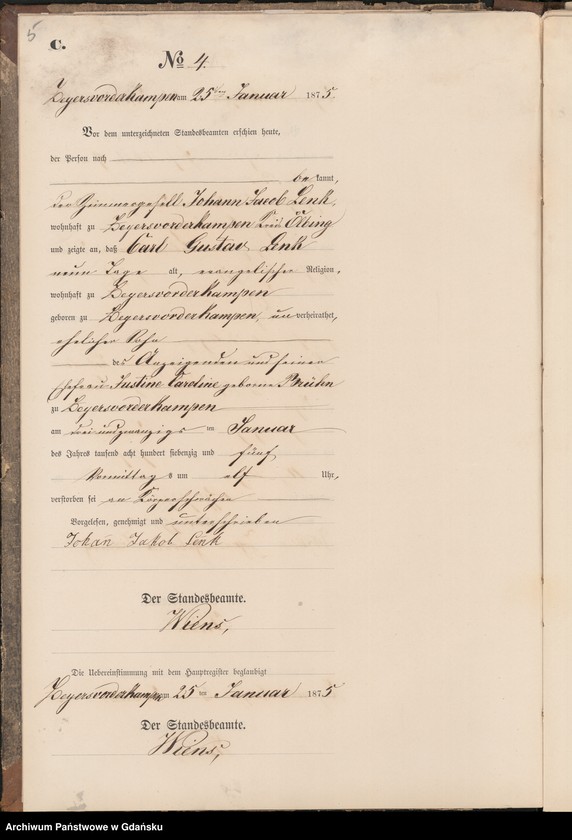 5
C.
No 4.
Zeyersvorderkampen am 25ten Januar 1875.
Vor dem unterzeichneten Standesbeamten erschien heute,
der Person nach
be kannt,
der Zimmergesell Johann Jacob Lenk,
wohnhaft zu Zeyersvorderkampen Elbing
und zeigte an, daß Carl Gustav Lenk
neun Tage alt, evangelischer Religion,
wohnhaft zu Zeyersvorderkampen
geboren zu Zeyersvorderkampen, unverheirathet,
ehelicher Sohn
des Anzeigenden und seiner
Ehefrau Justine Caroline geborne
zu Zeyersvorderkampen
am drei und zwanzigs ten Januar
des Jahres tausend acht hundert siebenzig und fünf
Vormittags um elf Uhr,
verstorben sei an Körperschwäche
Vorgelesen, genehmigt und unterschrieben
Johan Jakob Lenk
Der Standesbeamte.
Wiens,
Die Uebereinstimmung mit dem Hauptregister beglaubigt
Zeyersvorderkampen am 25ten Januar 1875
Der Standesbeamte.
Wiens,
Archiwum Państwowe w Gdańsku